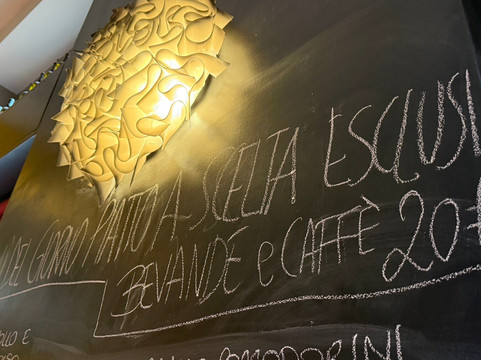 DEL GIORNO PIATTO A SCELTA ESCLUSI
BEVANDE e CAFFÈ 20
POMODORINI